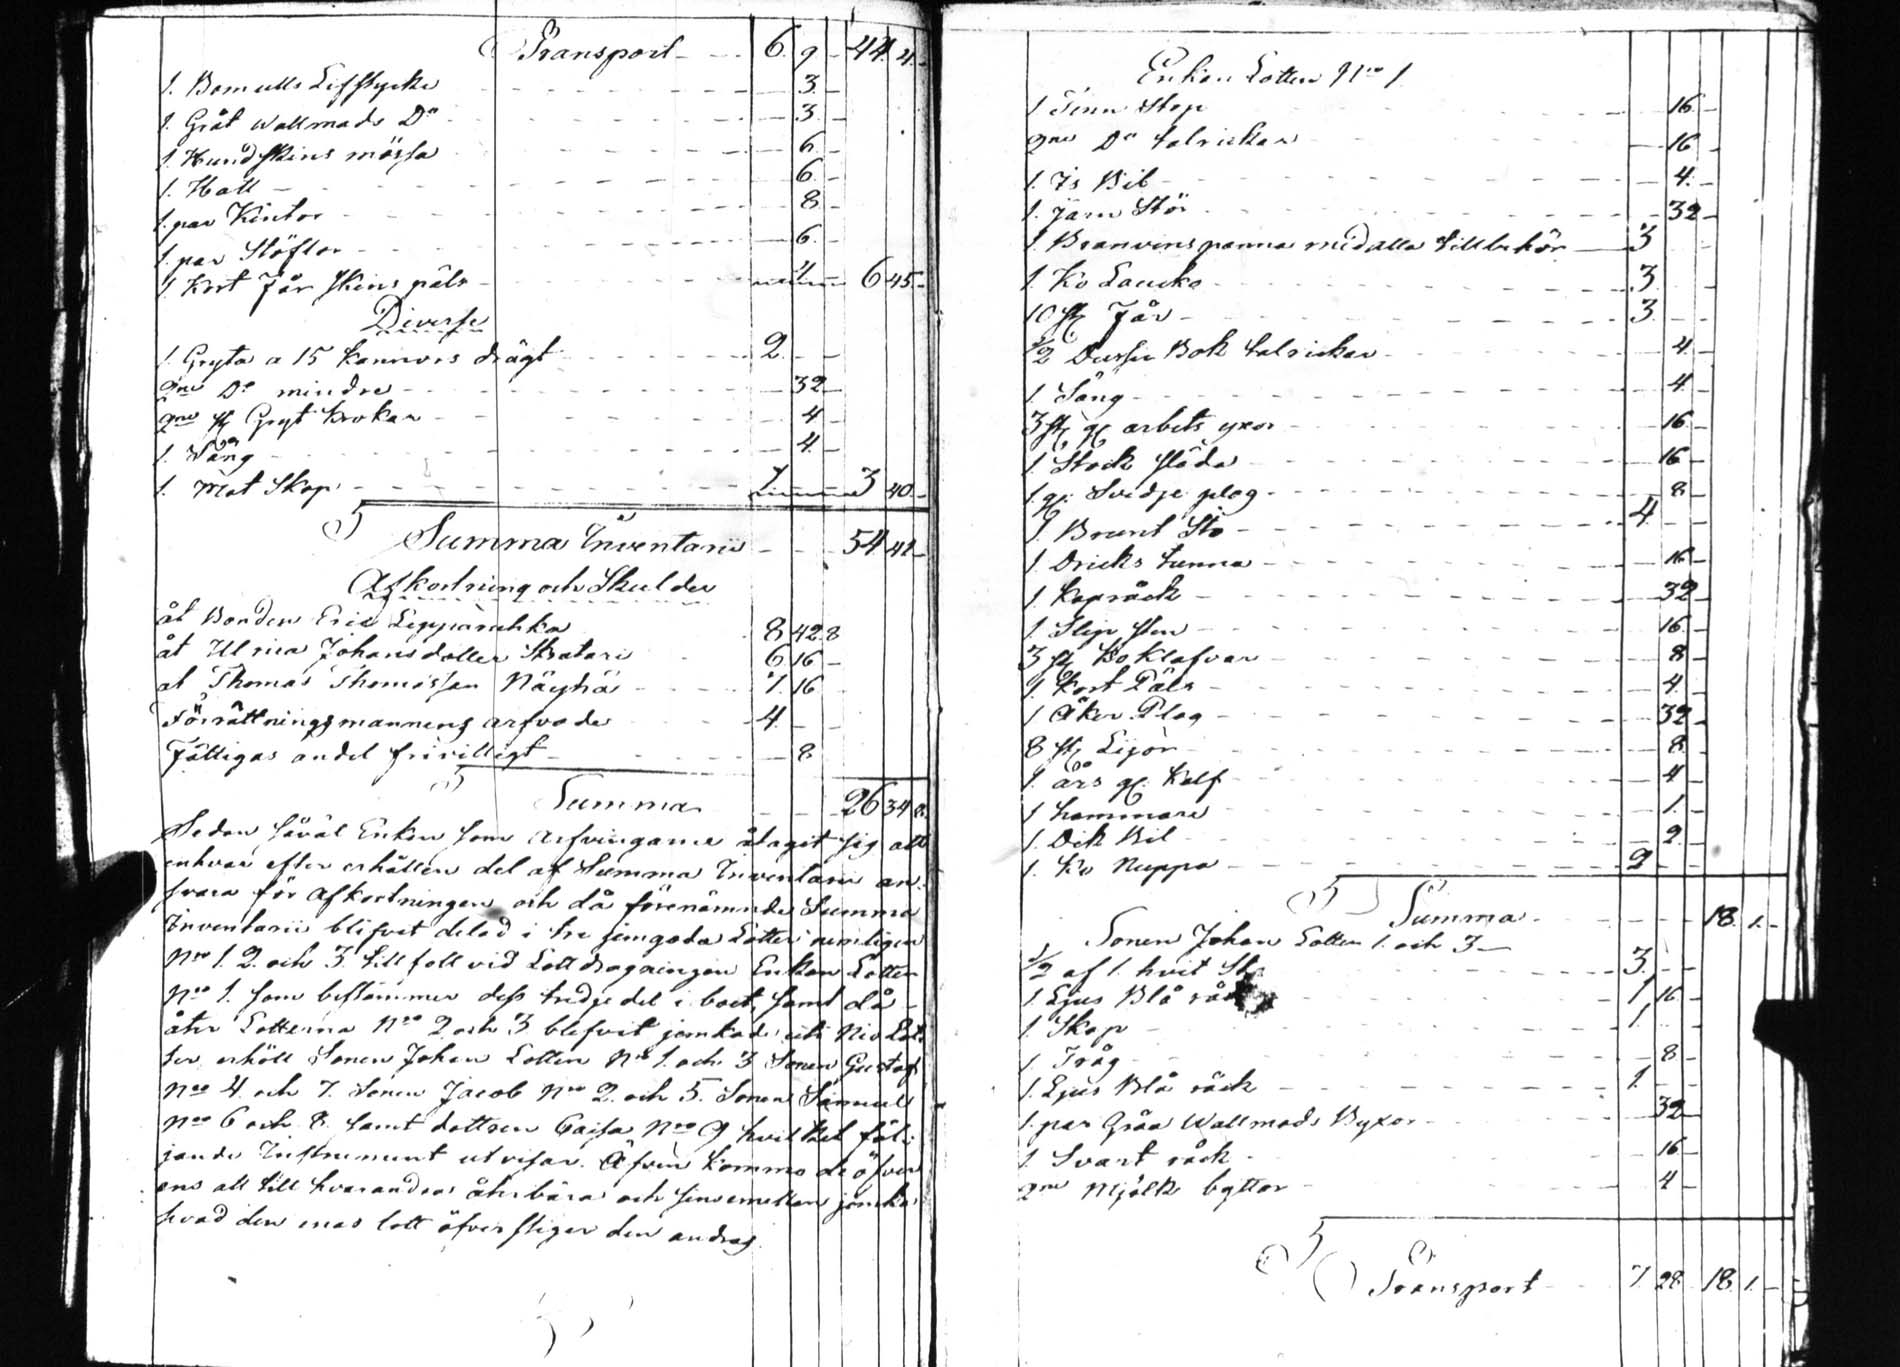 Transport 6. 9 44. 4.
1. Bomulls Lifstycke 3.
1. Gråt Wallmads Do 3.
1. Hundskins mössa 6.
1. Hatt 6.
1. par Kintor 8
1. par Stöflor 6.
1. Kort Får skins päls 6 45.
Diverse
1. Gryta a 15 kannors drägt 2.
2ne Do mindre 32
2ne st Gryt krokar 4
1. Säng 4.
1. Mat Skåp 1 3 40.
Summa Inventarii 54 41
Afkortning och Skulder
åt Bonden Eric 8 42 8
åt Ulrica Johansdotter 6 16
at Thomas Thomasson 7. 16
Förrättningsmannens arfvode 4.
Fattigas andel frivilligt 8
Summa 26 34 8.
Sedan såväl Enkan som Arfvingarne åtagit sig att
enhvar efter erhållen del af Summa Inventarii an-
svara för Afkortningen och då förenämnde Summa
Inventarii blifvit delad i tre jemgoda Lotter nemligen
No 1. 2. och 3. till föll vid Lottdragningen Enkan Lotten
No 1. som bestämmer dess tredje del i boet, samt då
åter Lotterna No 2 och 3 blefvit jemkade uti Nio Lot-
ter, erhöll Sonen Johan Lotten No 1. och 3 Sonen Gustaf
No 4. och 7. Sonen Jacob No 2. och 5. Sonen Samuel
No 6 och 8. samt dottren Caisa No 9 hvilket föl-
jande Instrument utvisar. Äfven kommo de öfver
ens att till hvarandra återbära och sinsemellan jemka
hvad den enas lott öfverstiger den andras
Enkan Lotten No 1
1 Tenn Stop 16
2ne Do talrickar 16
1. Is Bil 4.
1. Jarn Stör 32
1 Branvins panna med alla tillbehör 3
1. Ko 3.
10 st Får 3.
1/2 Dussin Bok talrickar 4.
1. Säng 4
3 st gl arbets yxor 16
1 Stock släda 16
1 gl. Svidje plog 8
1. Brunt Sto 4.
1. Dricks tunna 16
1. Kapråck 32
1. Slip sten 16.
3 st Ko Klafvar 8
1. Kort Päls 4.
1 Åker Plog 32
8 st Lijor 8.
1. års gl. Kalf 4
1 hammare 1.
1. Dik Bil 2.
1. Ko Nuppo 2
Summa 18. 1.
Sonen Johan Lotten 1. och 3
1/2 af 1. hvit 3.
1. Ljus Blå 1. 16
1. Skåp 1.
1 Tråg 8
1. Ljus Blå råck 1.
1. par Gråa Wallmads Byxor 32
1 Svart råck 16
2ne Mjölk byttor 4
Transport 7. 28 18. 1.